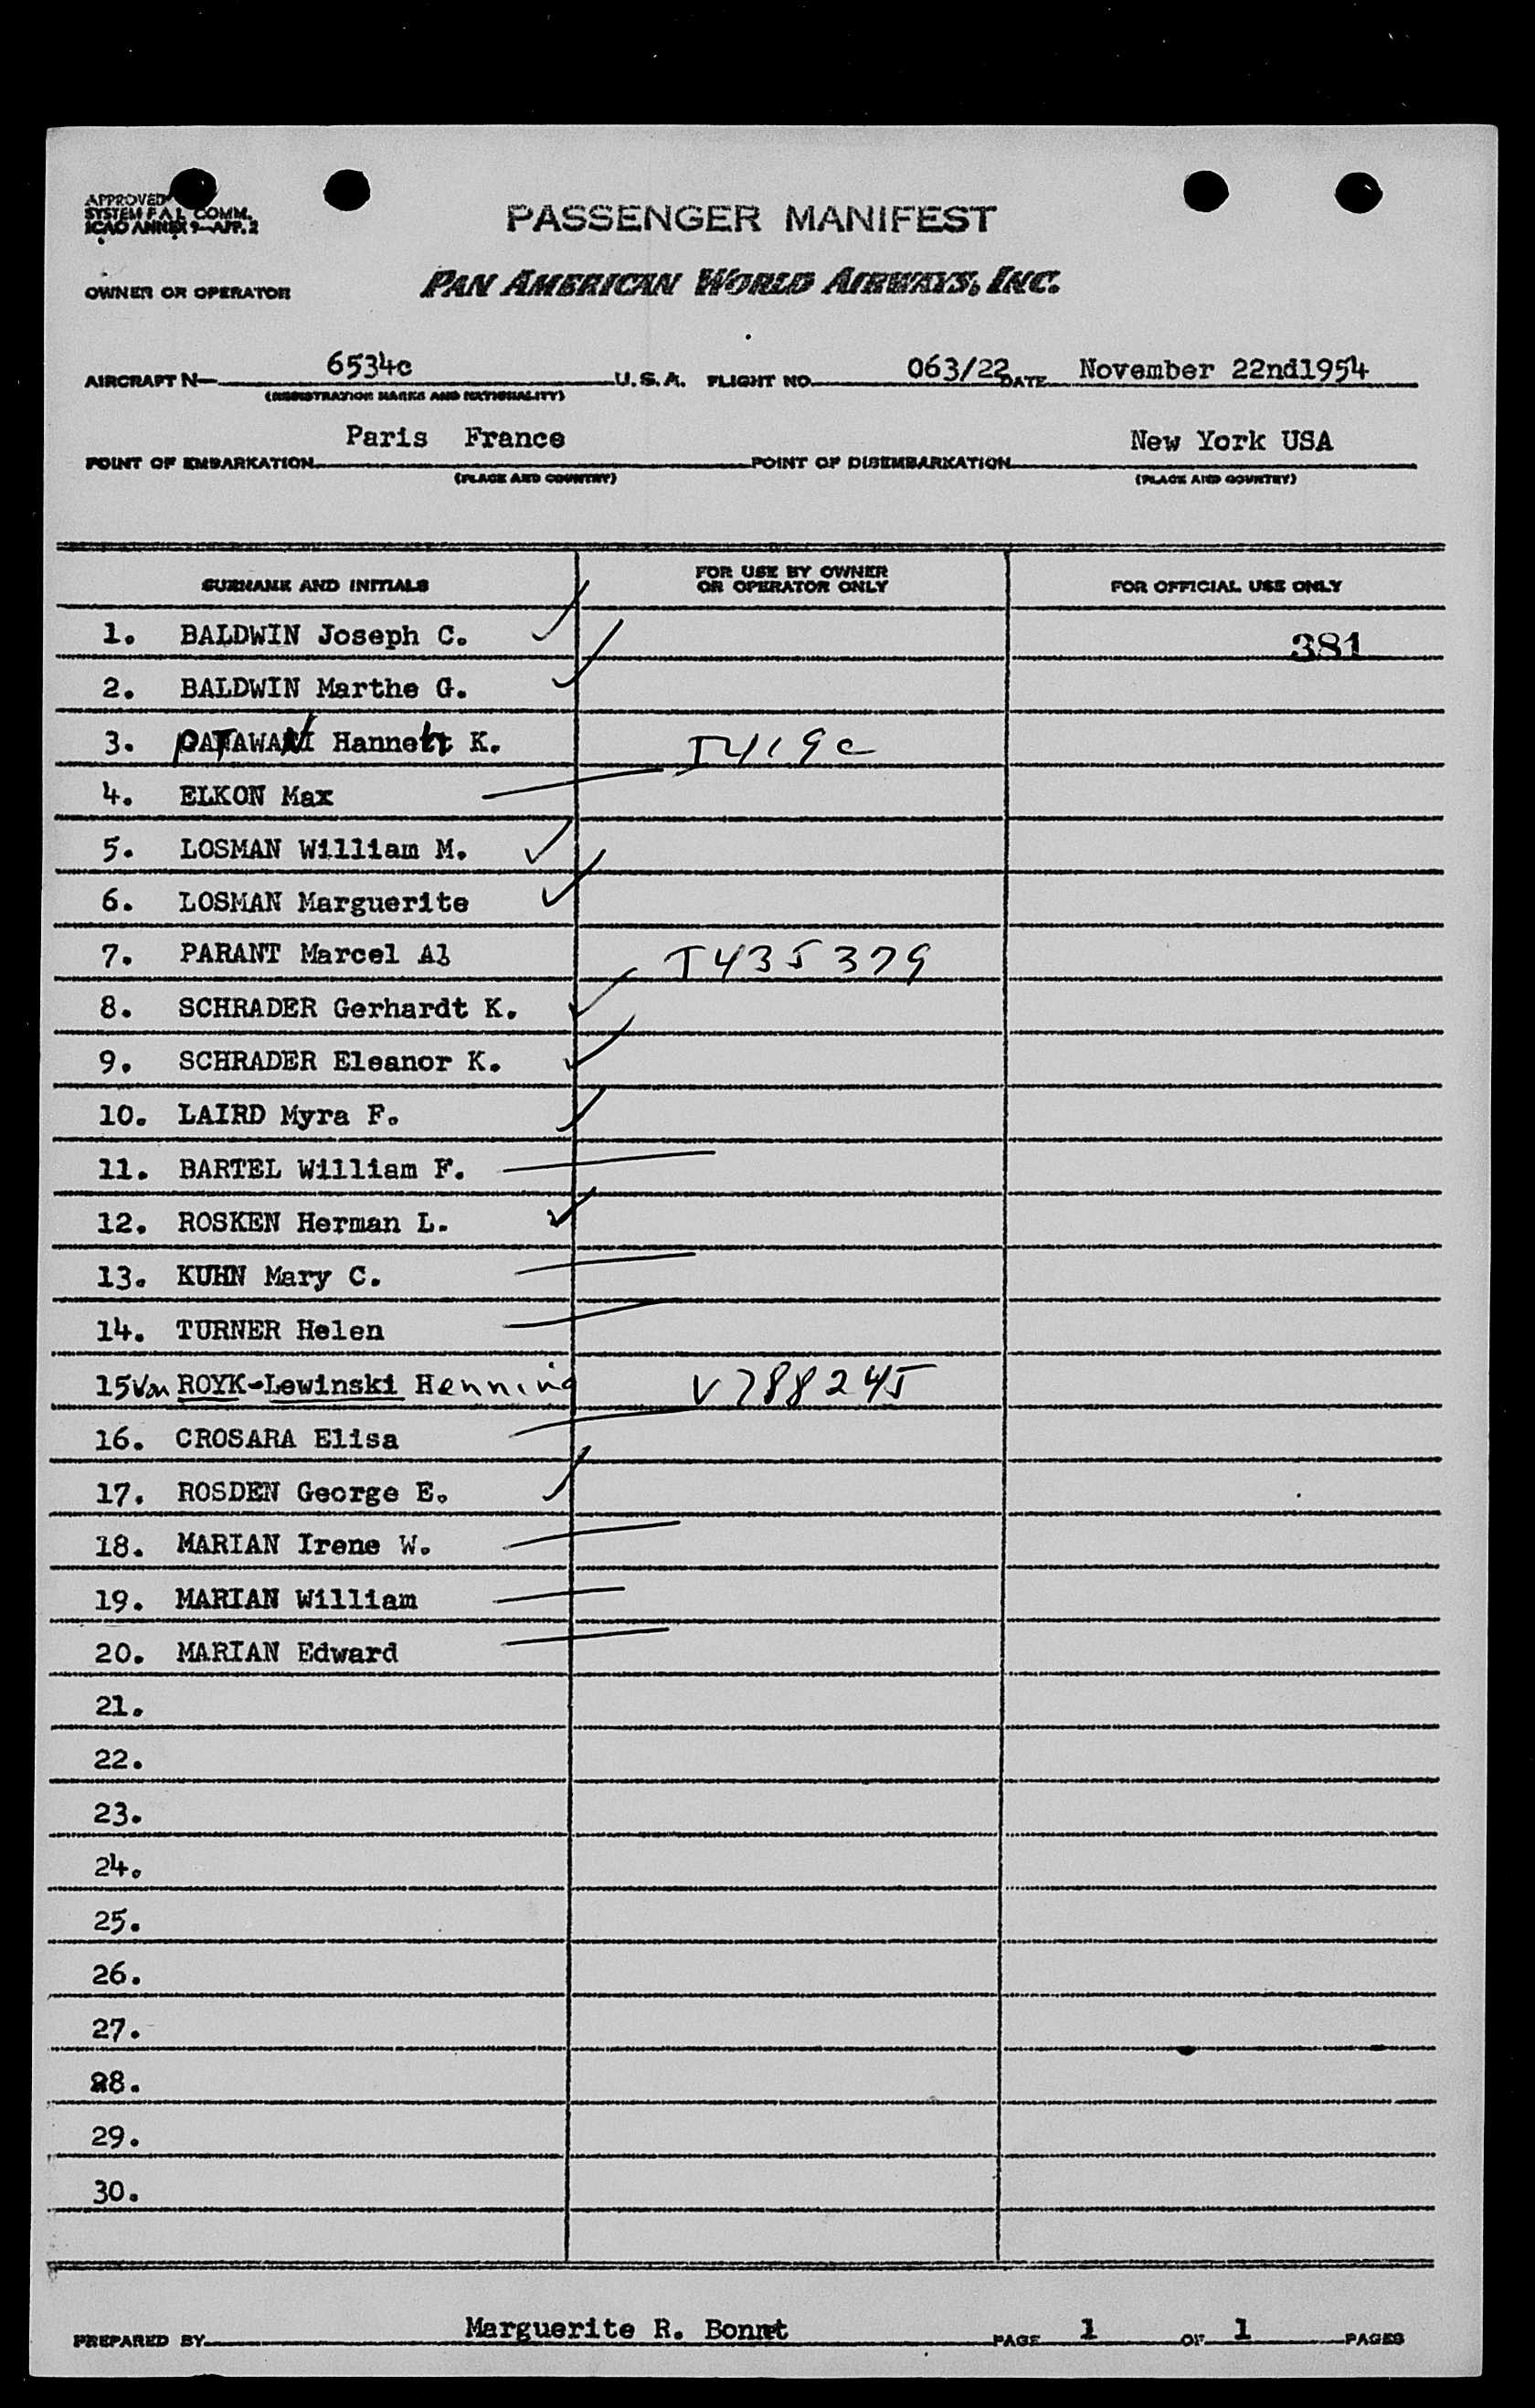 APPROVED
SYSTEM F.A.L. COMM.
ICAO ANNEX 9—APP. 2
PASSENGER MANIFEST
OWNER OR OPERATOR PAN AMERICAN WORLD AIRWAYS, INC.
AIRCRAFT N— 6534c U.S.A. FLIGHT NO. 063/22 DATE November 22nd1954
(REGISTRATION MARKS AND NATIONALITY)
Paris France New York USA
POINT OF EMBARKATION POINT OF DISEMBARKATION
(PLACE AND COUNTRY) (PLACE AND COUNTRY)
SURNAME AND INITIALS FOR USE BY OWNER OR OPERATOR ONLY FOR OFFICIAL USE ONLY
1. BALDWIN Joseph C. 381
2. BALDWIN Marthe G.
3. K.
4. ELKON Max
5. LOSMAN William M.
6. LOSMAN Marguerite
7. PARANT Marcel Al T435379
8. SCHRADER Gerhardt K.
9. SCHRADER Eleanor K.
10. LAIRD Myra F.
11. BARTEL William F.
12. ROSKEN Herman L.
13. KUHN Mary C.
14. TURNER Helen
15 Von ROYK-Lewinski Henning V788245
16. CROSARA Elisa
17. ROSDEN George E.
18. MARIAN Irene W.
19. MARIAN William
20. MARIAN Edward
21.
22.
23.
24.
25.
26.
27.
28.
29.
30.
PREPARED BY Marguerite R. Bonnet PAGE 1 OF 1 PAGES